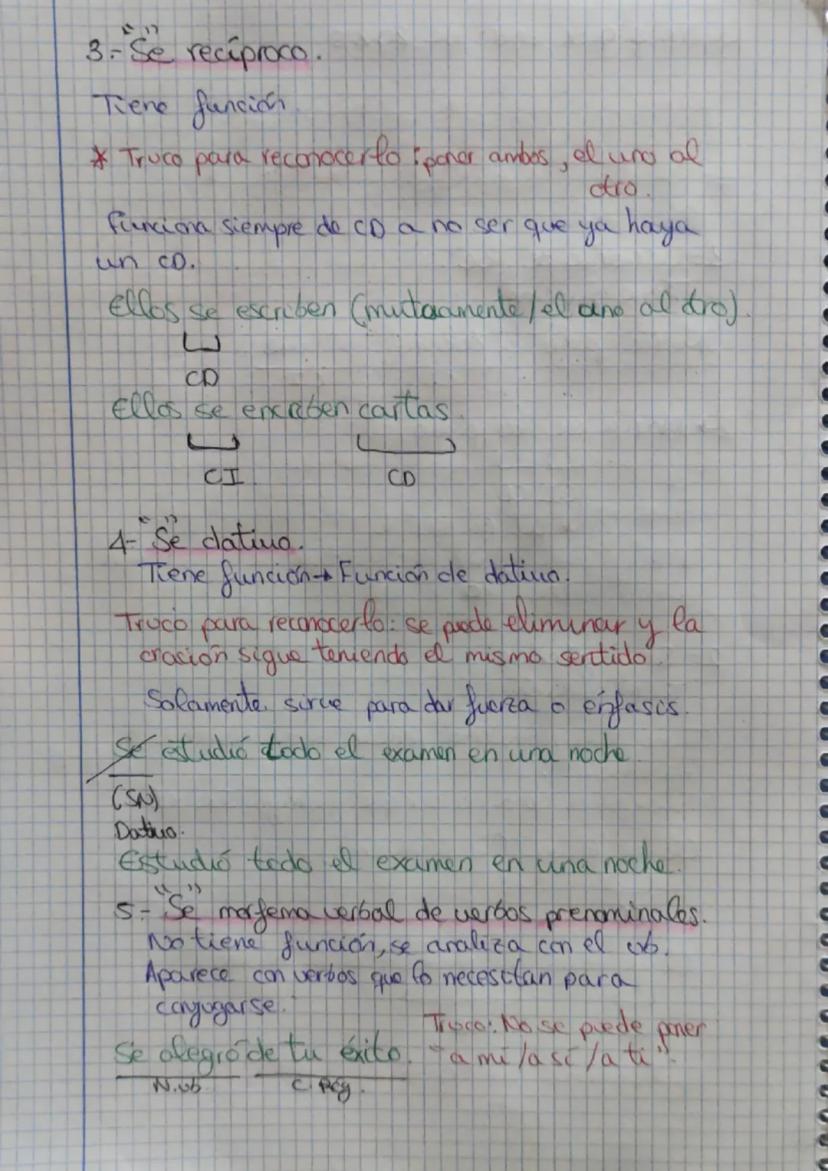 3.- "Se" recíproco.
Tiene función
* Truco para reconocerlo: poner ambos, el uno al
otro.
Funciona siempre de CD a no ser que ya haya
un CD.
Ellos se escriben (mutuamente / el uno al otro).
CD
Ellos se escriben cartas.
CI CD
4- "Se" dativo.
Tiene función → Función de dativo.
Truco para reconocerlo: se puede eliminar y la
oración sigue teniendo el mismo sentido.
Solamente sirve para dar fuerza o énfasis.
Se estudió todo el examen en una noche
(SN)
Dativo.
Estudió todo el examen en una noche.
5- "Se" morfema verbal de verbos prenominales.
No tiene función, se analiza con el vb.
Aparece con verbos que lo necesitan para
conjugarse.
Truco: No se puede poner
Se alegró de tu éxito. "a mí/a sí/a ti".
N.vb C. Reg.